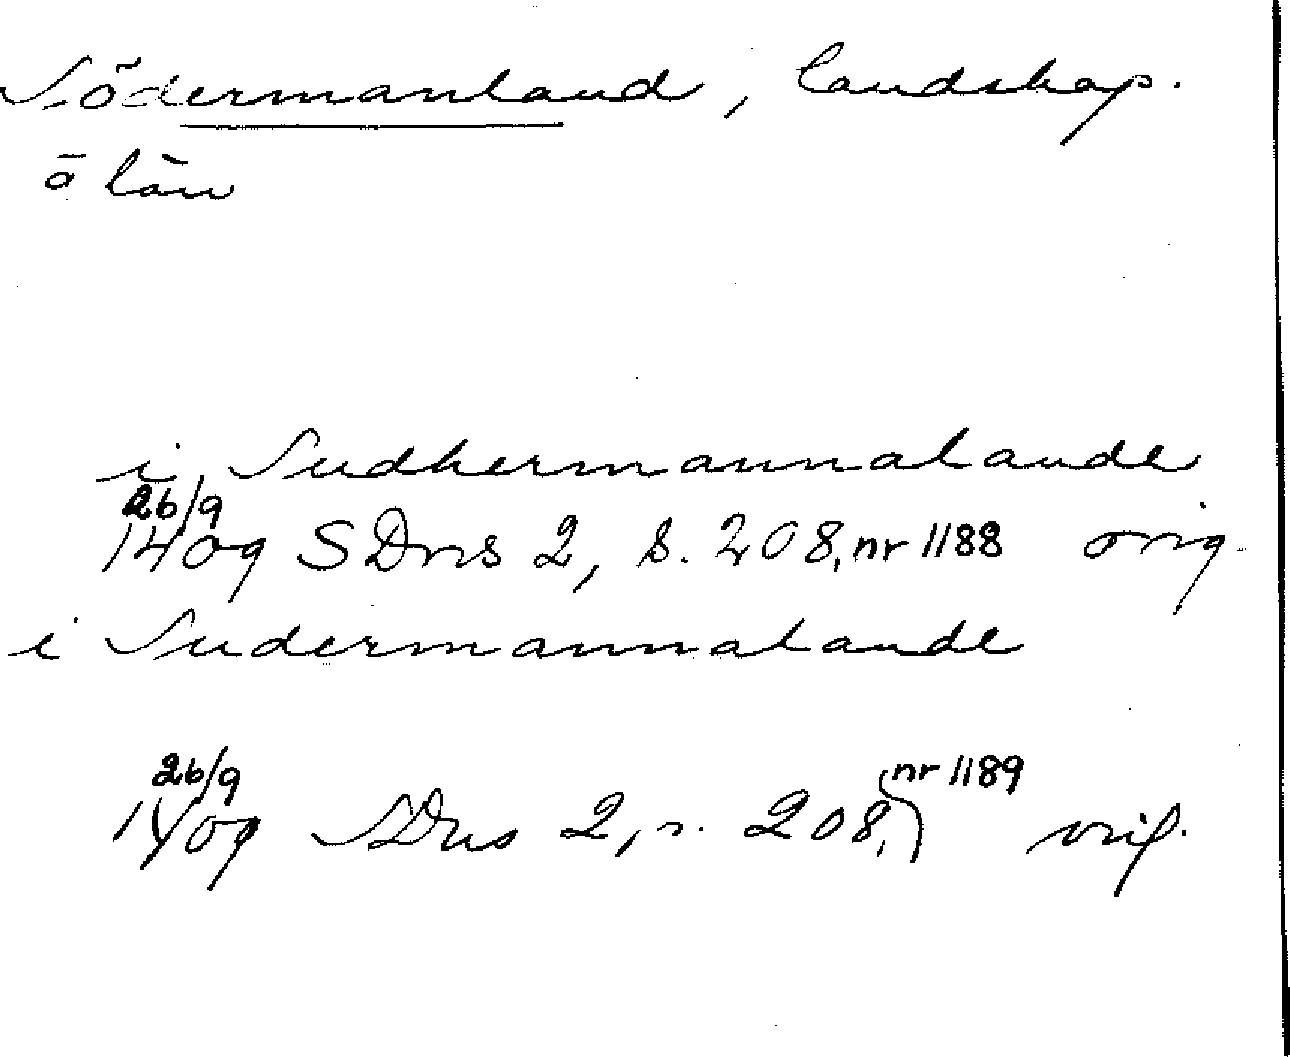 Södermanland, landskap.
o län
i Sudhermannalande
26/9
1409 SDns 2, s. 208, nr 1188 orig.
i Sudermannalande
26/9
1409 SDns 2, s. 208, nr 1189 orig.